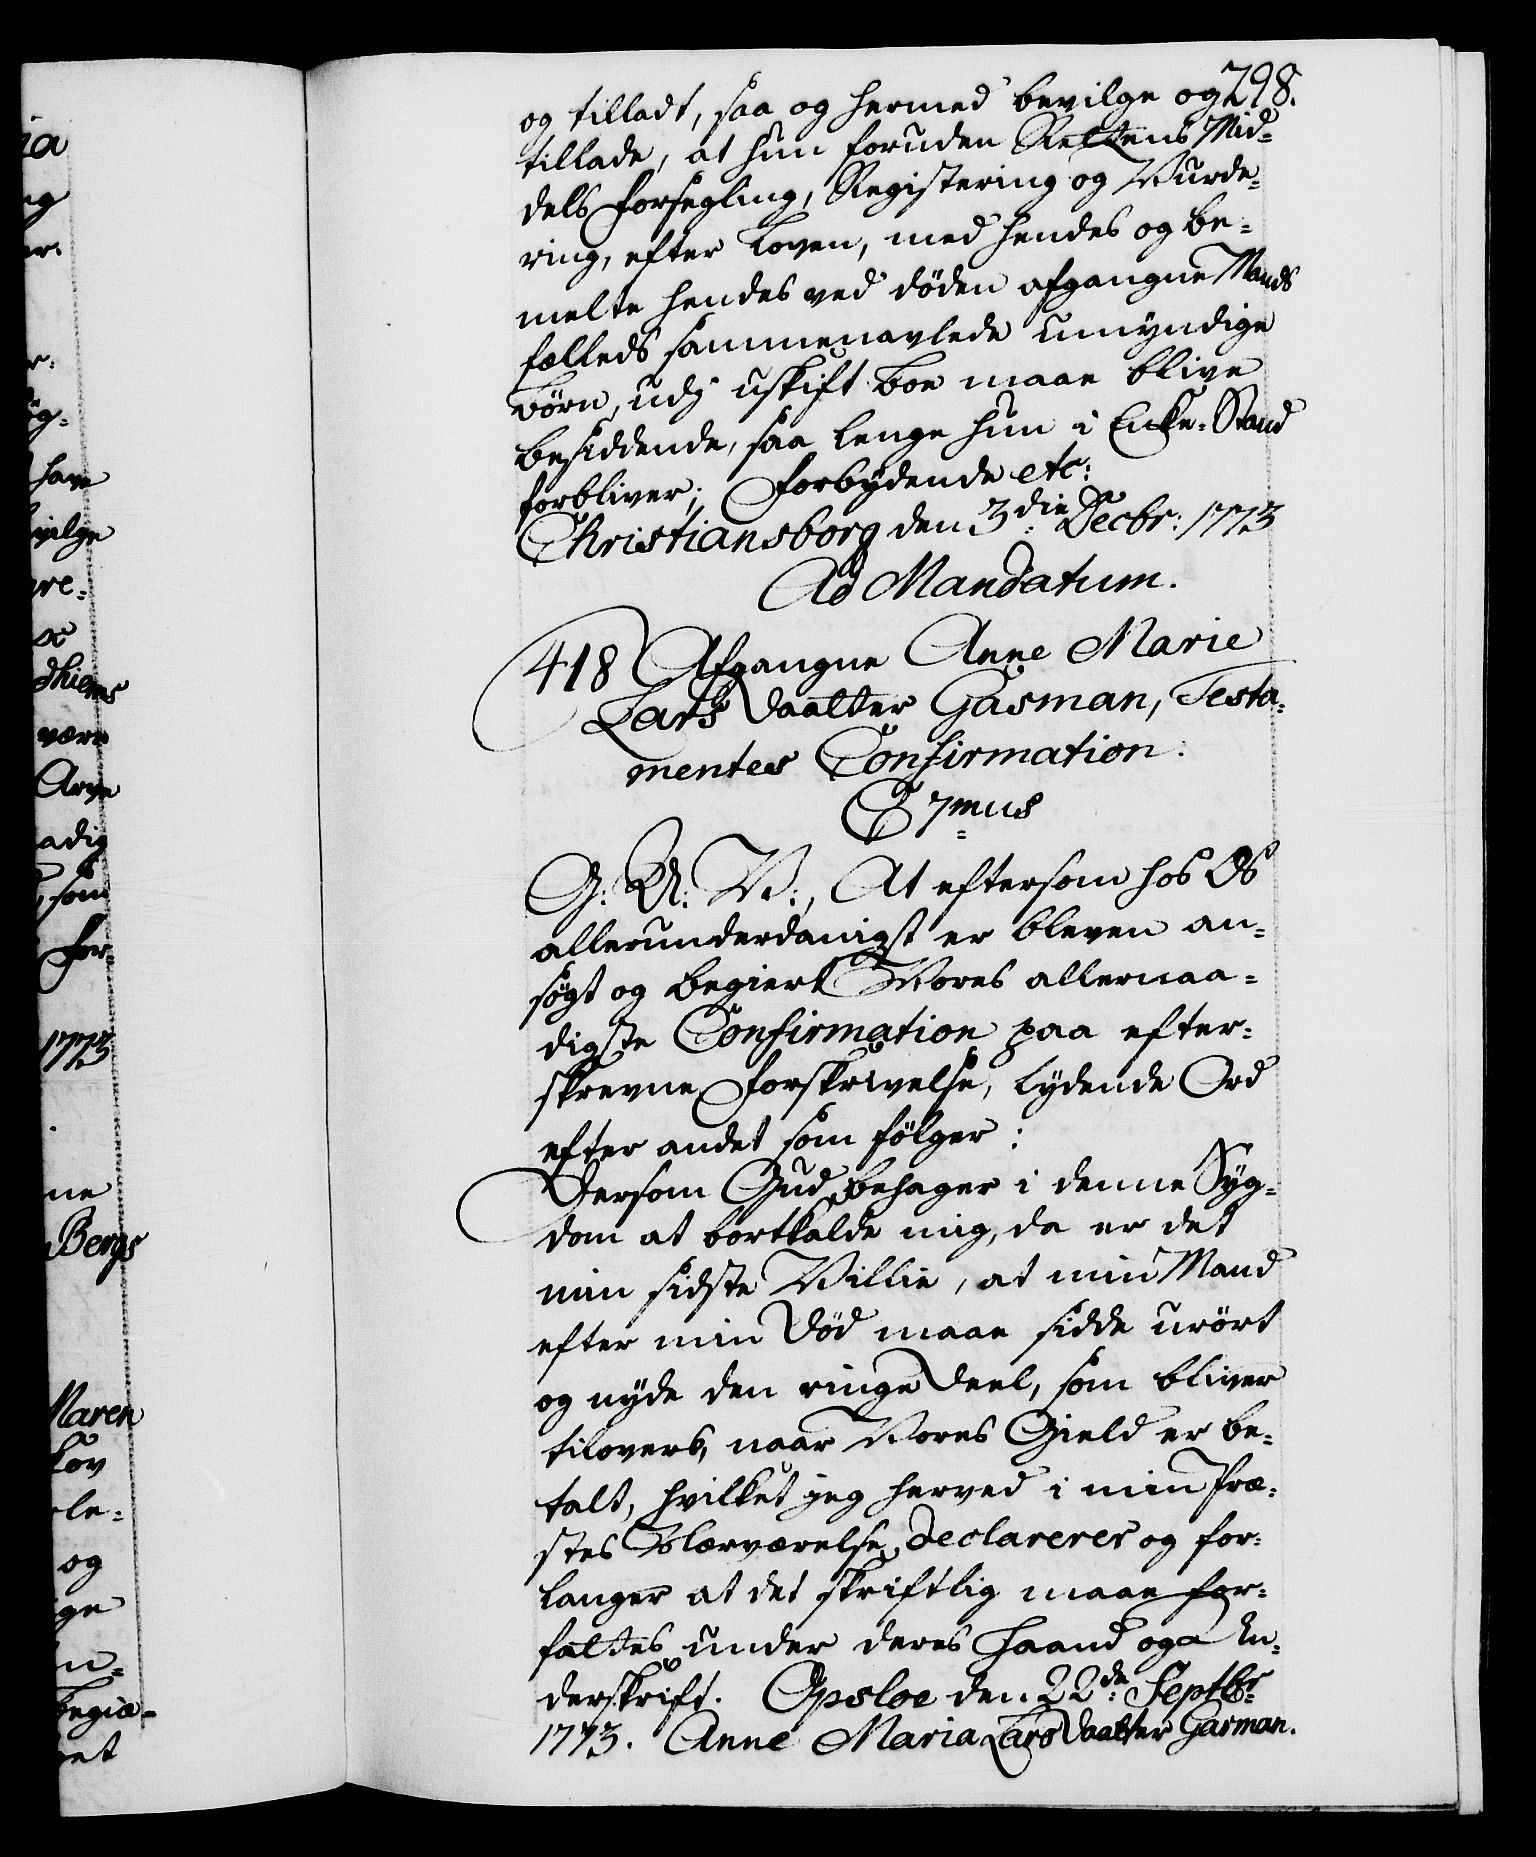 298.
og tilladt, saa og hermed bevilge og
tillade, at hun foruden Rettens Mid-
dels Forsegling, Registering og Vurde-
ring, efter Loven, med hendes og be-
melte hendes ved døden afgangne Mands
fælleds sammenavlede umyndige
børn, udj uskift Boe maae blive
besiddende, saa længe hun i Enke-Stand
forbliver; Forbydende etc:
Christiansborg den 3die Decbr: 1773
Ad Mandatum.
418 Afgangne Anne Marie
Lars Daatter Gasman, Testa-
mentes Confirmation.
C 7mus
G: A: V:, At eftersom hos Os
allerunderdanigst er bleven an-
søgt og begiert Vores allernaa-
digste Confirmation paa efter-
skrevne Forskrivelse, lydende Ord
efter andet som følger:
Dersom Gud behager i denne Syg-
dom at bortkalde mig, da er det
min sidste Villie, at min Mand
efter min Død maae sidde urørt
og nyde den ringe Deel, som bliver
tilovers, naar Vores Gield er be-
talt, hvilket jeg herved i min Præ-
stes Nærværelse declarerer og for-
langer at det skriftlig maae for-
fattes under deres Haand og Un-
derskrift. Opsloe den 22de Septbr
1773. Anne Maria Lars Daatter Garman.
ia
ng
er.
r.
yg-
have
vilge
re-
dhiems
være
Arve
adig
som
For-
1773
ne
Bergs
Maren
Lov
le-
og
ge
n-
begiæ-
et